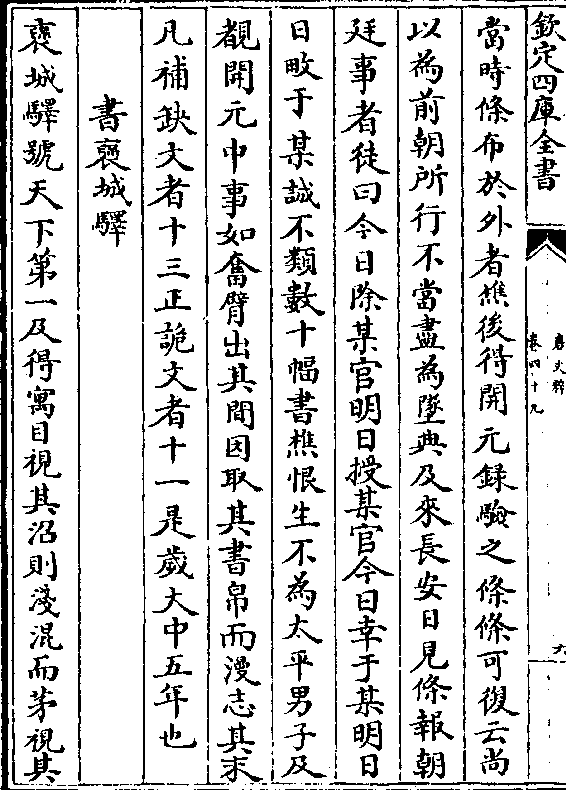 欽定四庫全書
唐文粹
卷四十九
九
當時條布於外者樵後得開元録驗之條條可復云尚
以為前朝所行不當盡為墜典及來長安日見條報朝
廷事者徒曰今日除某官明日授某官今日幸于某明日
日畋于某誠不類數十幅書樵恨生不為太平男子及
覩開元中事如奮臂出其間因取其書帛而漫志其末
凡補缺文者十三正訛文者十一是歲大中五年也
書褒城驛
褒城驛號天下第一及得寓目視其沼則淺混而茅視其